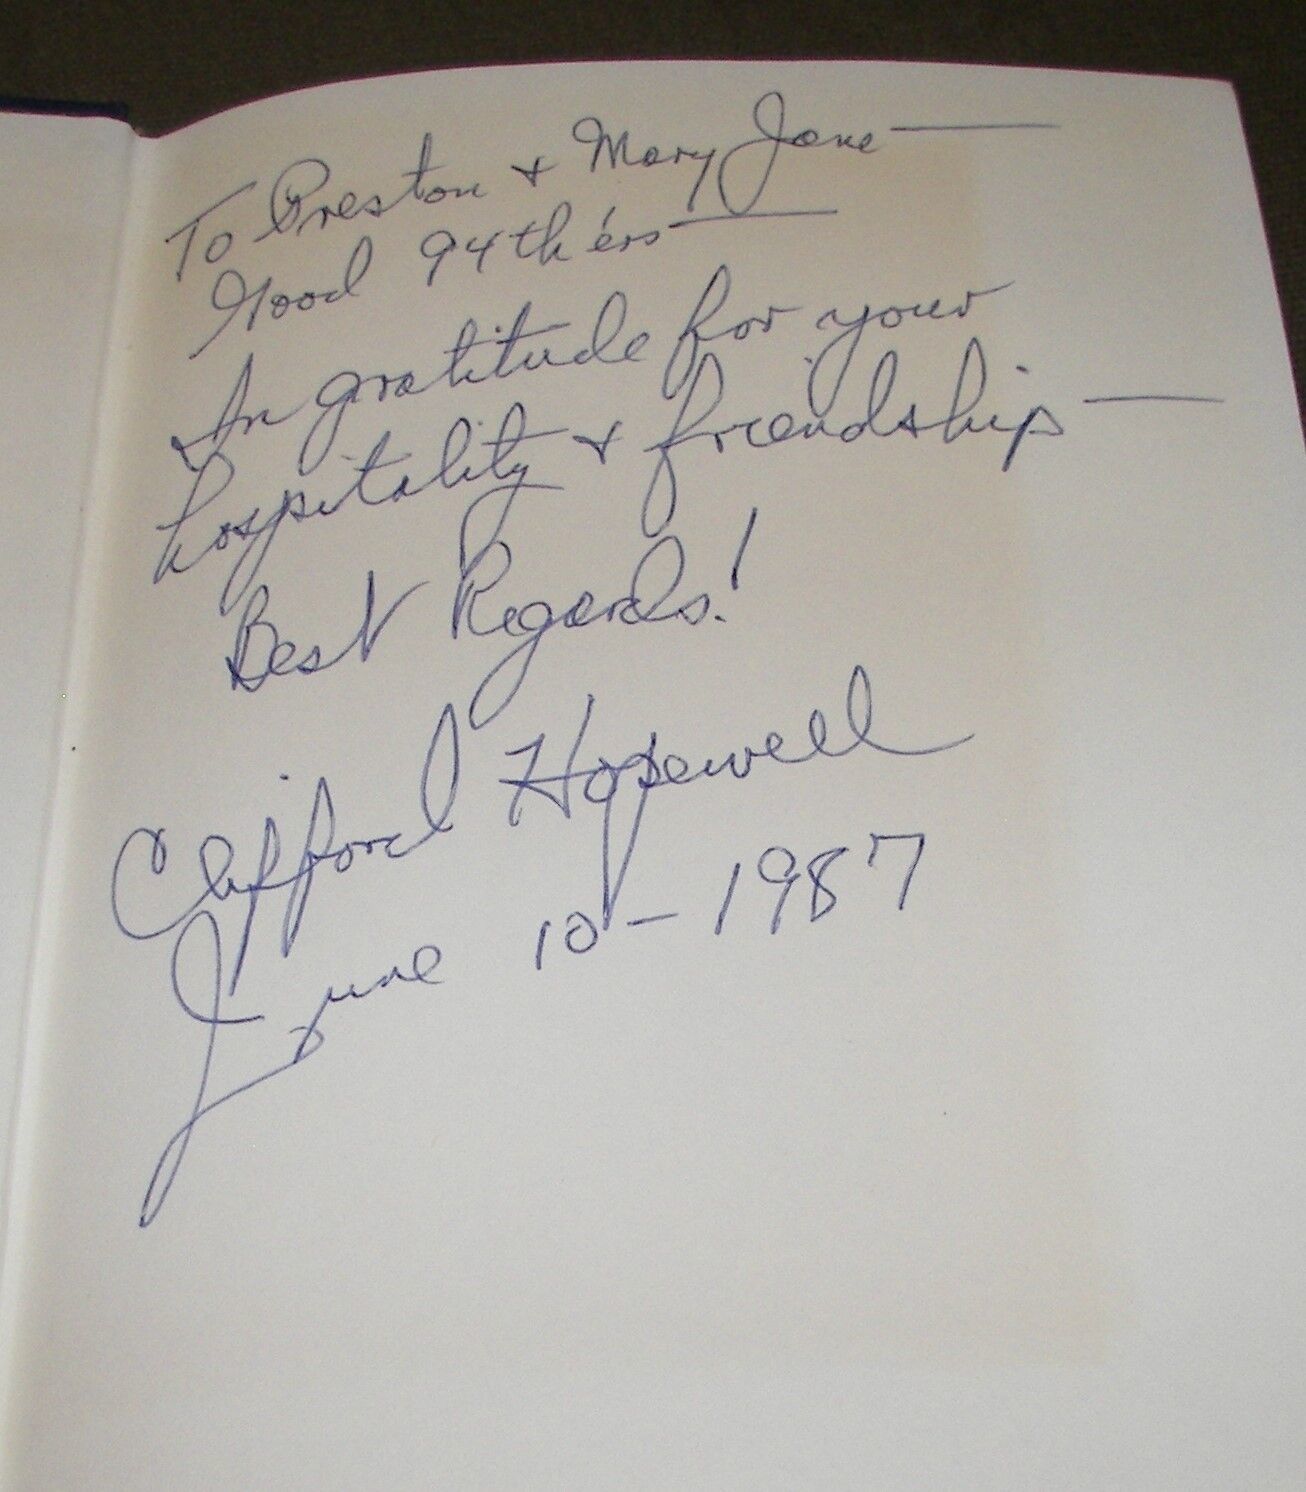 To Preston & Mary Jane —
Good 94th'ers —
In gratitude for your
hospitality & friendship —
Best Regards!
Clifford Hopewell
June 10 - 1987